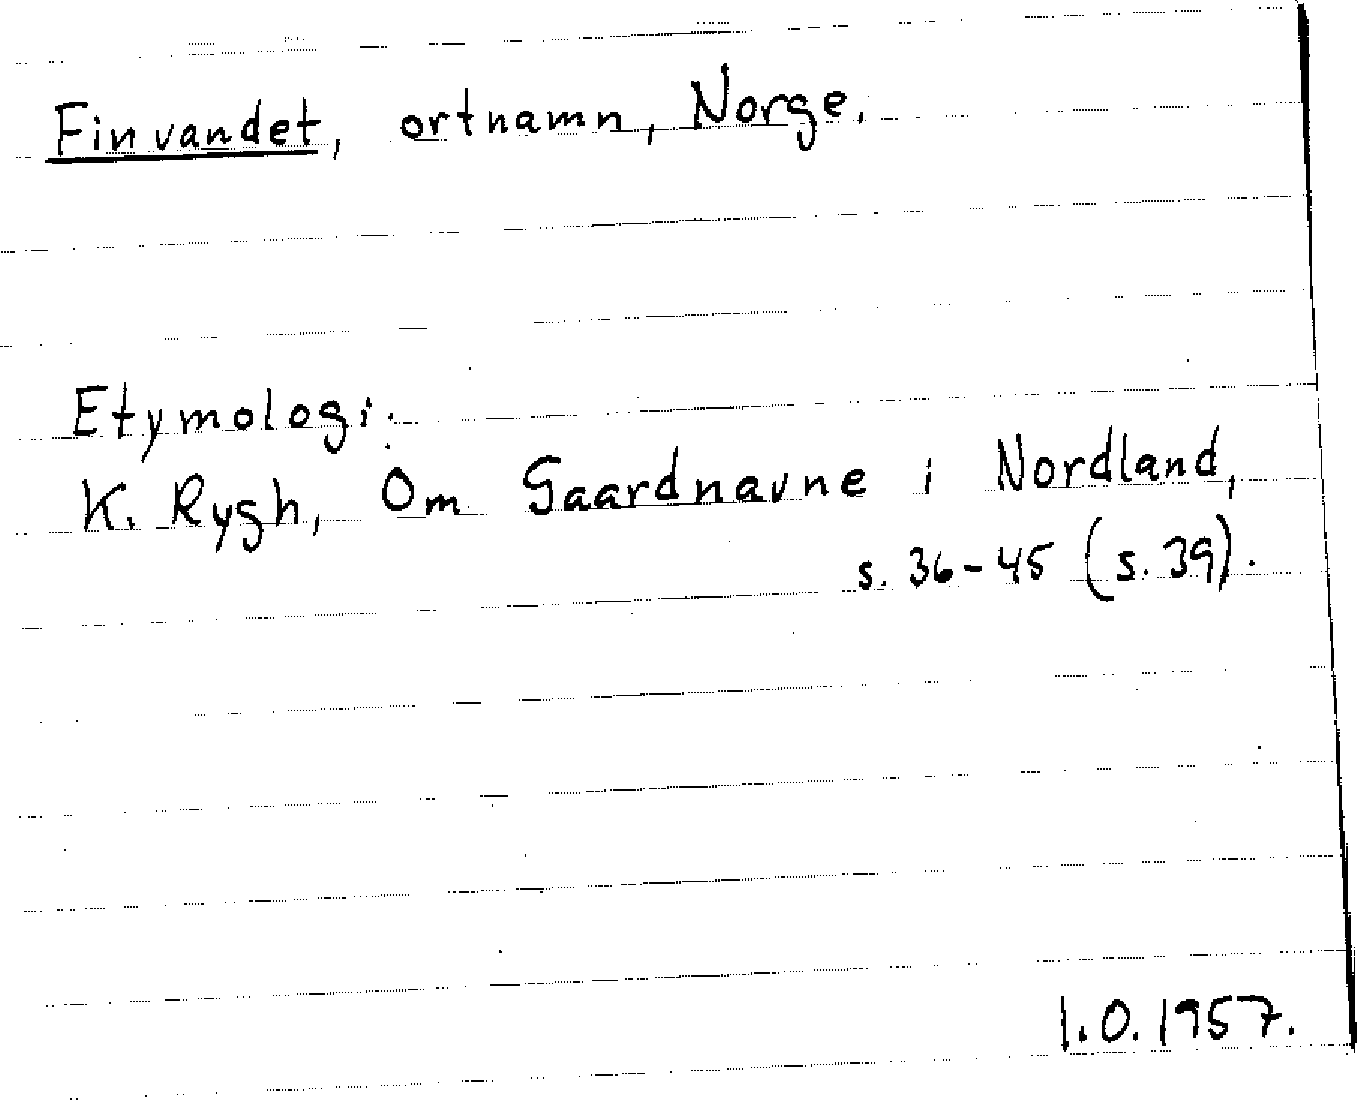 Finvandet, ortnamn, Norge.
Etymologi:
K. Rygh, Om Gaardnavne i Nordland,
s. 36-45 (s. 39).
I.O. 1957.